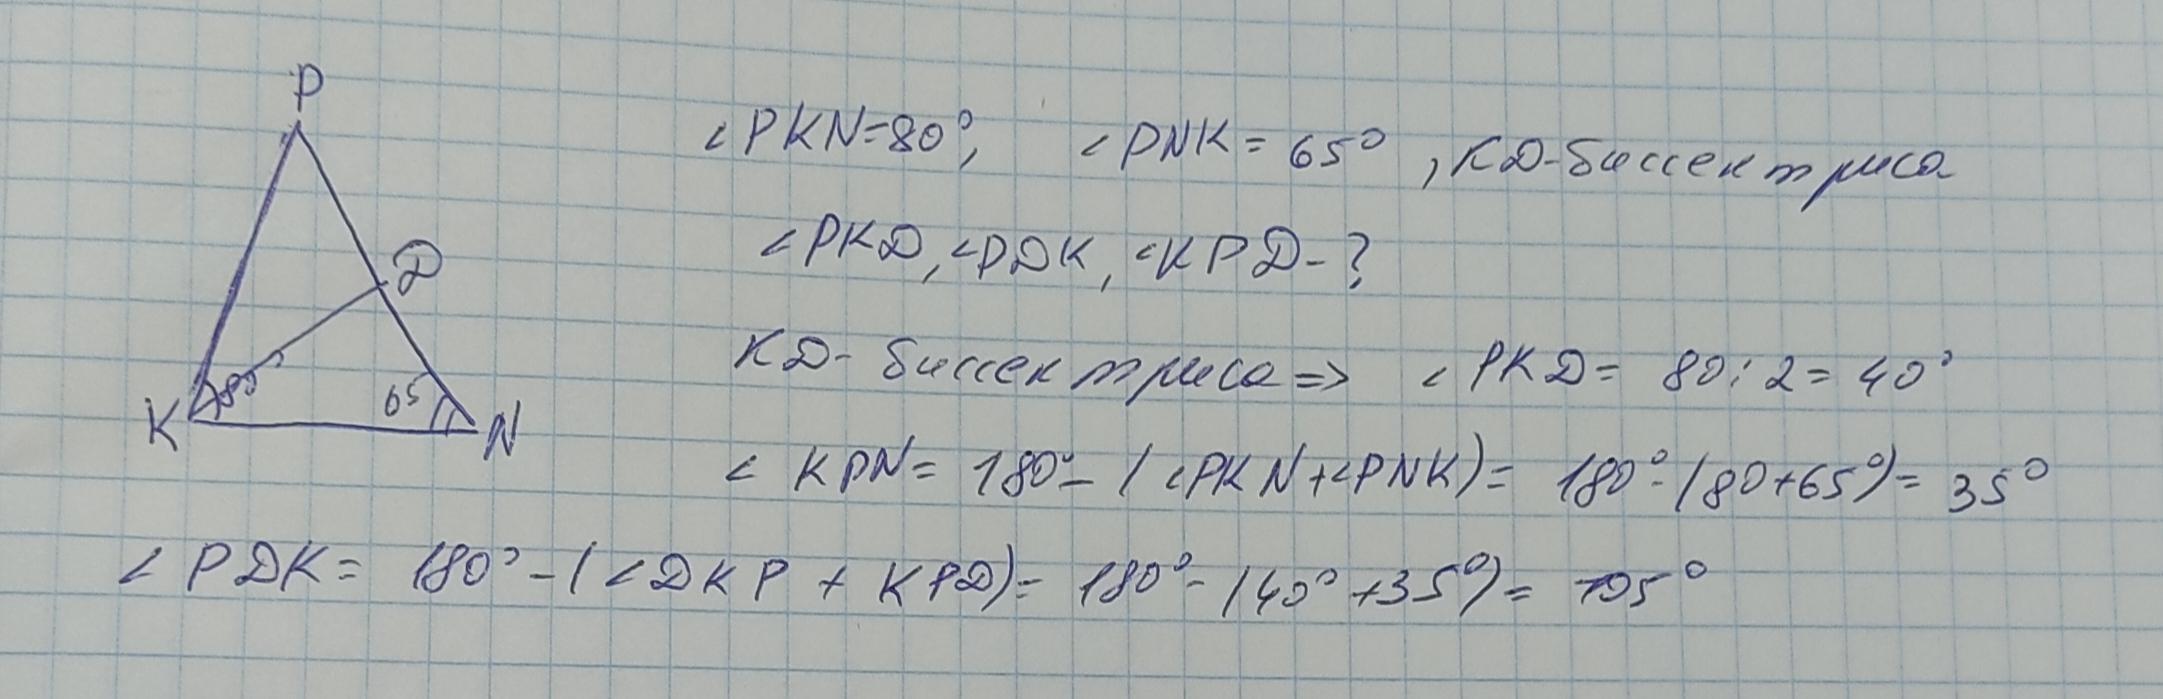 P
∠PKN=80°, ∠PNK = 65°, KD-биссектриса
∠PKD, ∠PDK, ∠KPD-?
D
KD- биссектриса => ∠PKD= 80:2= 40°
80°
65
K
N
∠ KPN= 180°- (∠PKN+∠PNK)= 180°-(80+65°)= 35°
∠ PDK= 180°-(∠DKP + KPD)= 180°-(40°+35°)= 105°